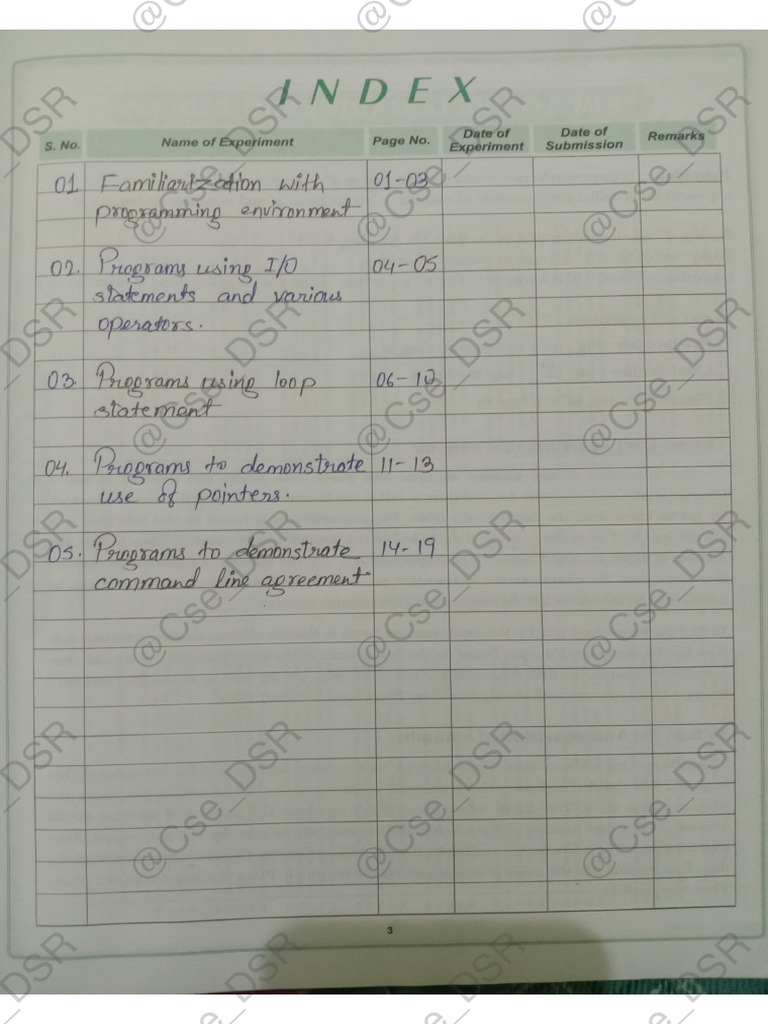 INDEX
S. No. Name of Experiment Page No. Date of Experiment Date of Submission Remarks
01. Familiarization with 01-03
programming environment
02. Programs using I/O 04-05
statements and various
operators.
03. Programs using loop 06-10
statement
04. Programs to demonstrate 11-13
use of pointers.
05. Programs to demonstrate 14-19
command line agreement
3
@Cse_DSR